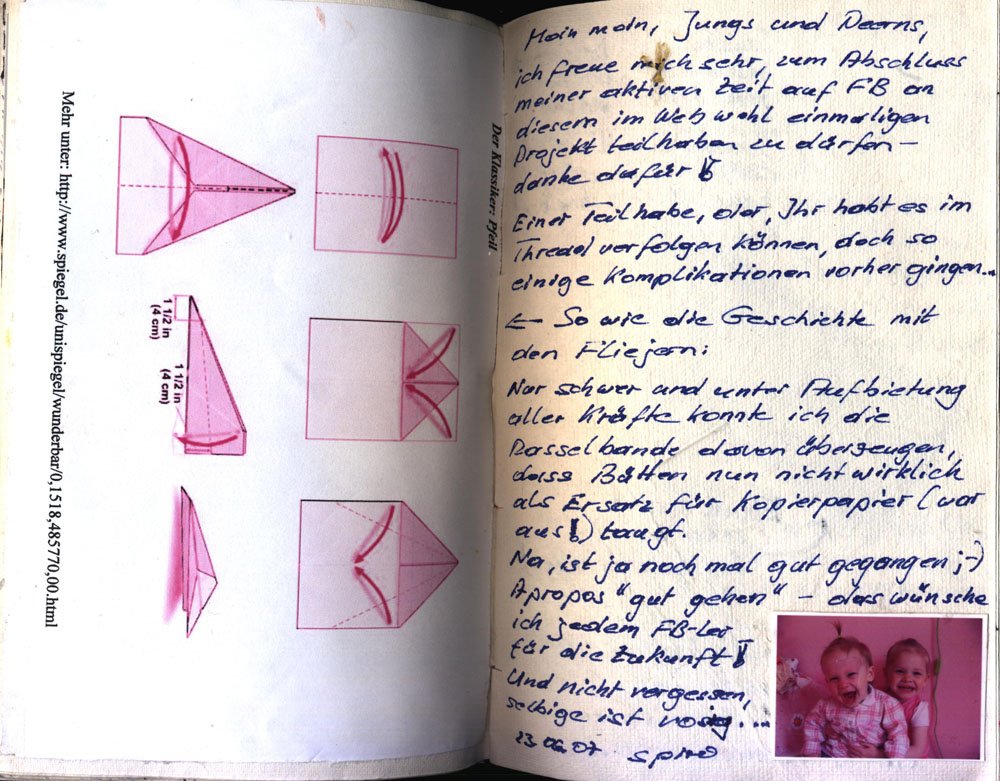 Der Klassiker: Pfeil.
1 1/2 in
(4 cm)
1 1/2 in
(4 cm)
Mehr unter: http://www.spiegel.de/unispiegel/wunderbar/0,1518,485770,00.html
Moin moin, Jungs und Deerns,
ich freue mich sehr, zum Abschluss
meiner aktiven Zeit auf FB an
diesem im Web wohl einmaligen
Projekt teilhaben zu dürfen –
danke dafür!
Einer Teilhabe, der, Ihr habt es im
Thread verfolgen können, doch so
einige Komplikationen vorher gingen...
← So wie die Geschichte mit
den Fliejern:
Nur schwer und unter Aufbietung
aller Kräfte konnte ich die
Rasselbande davon überzeugen,
dass Bütten nun nicht wirklich
als Ersatz für Kopierpapier (war
aus!) taugt.
Na, ist ja noch mal gut gegangen ;-)
Apropos "gut gehen" – das wünsche
ich jedem FB-Ler
für die Zukunft!
Und nicht vergessen,
selbige ist rosig...
23 06 07 spiro